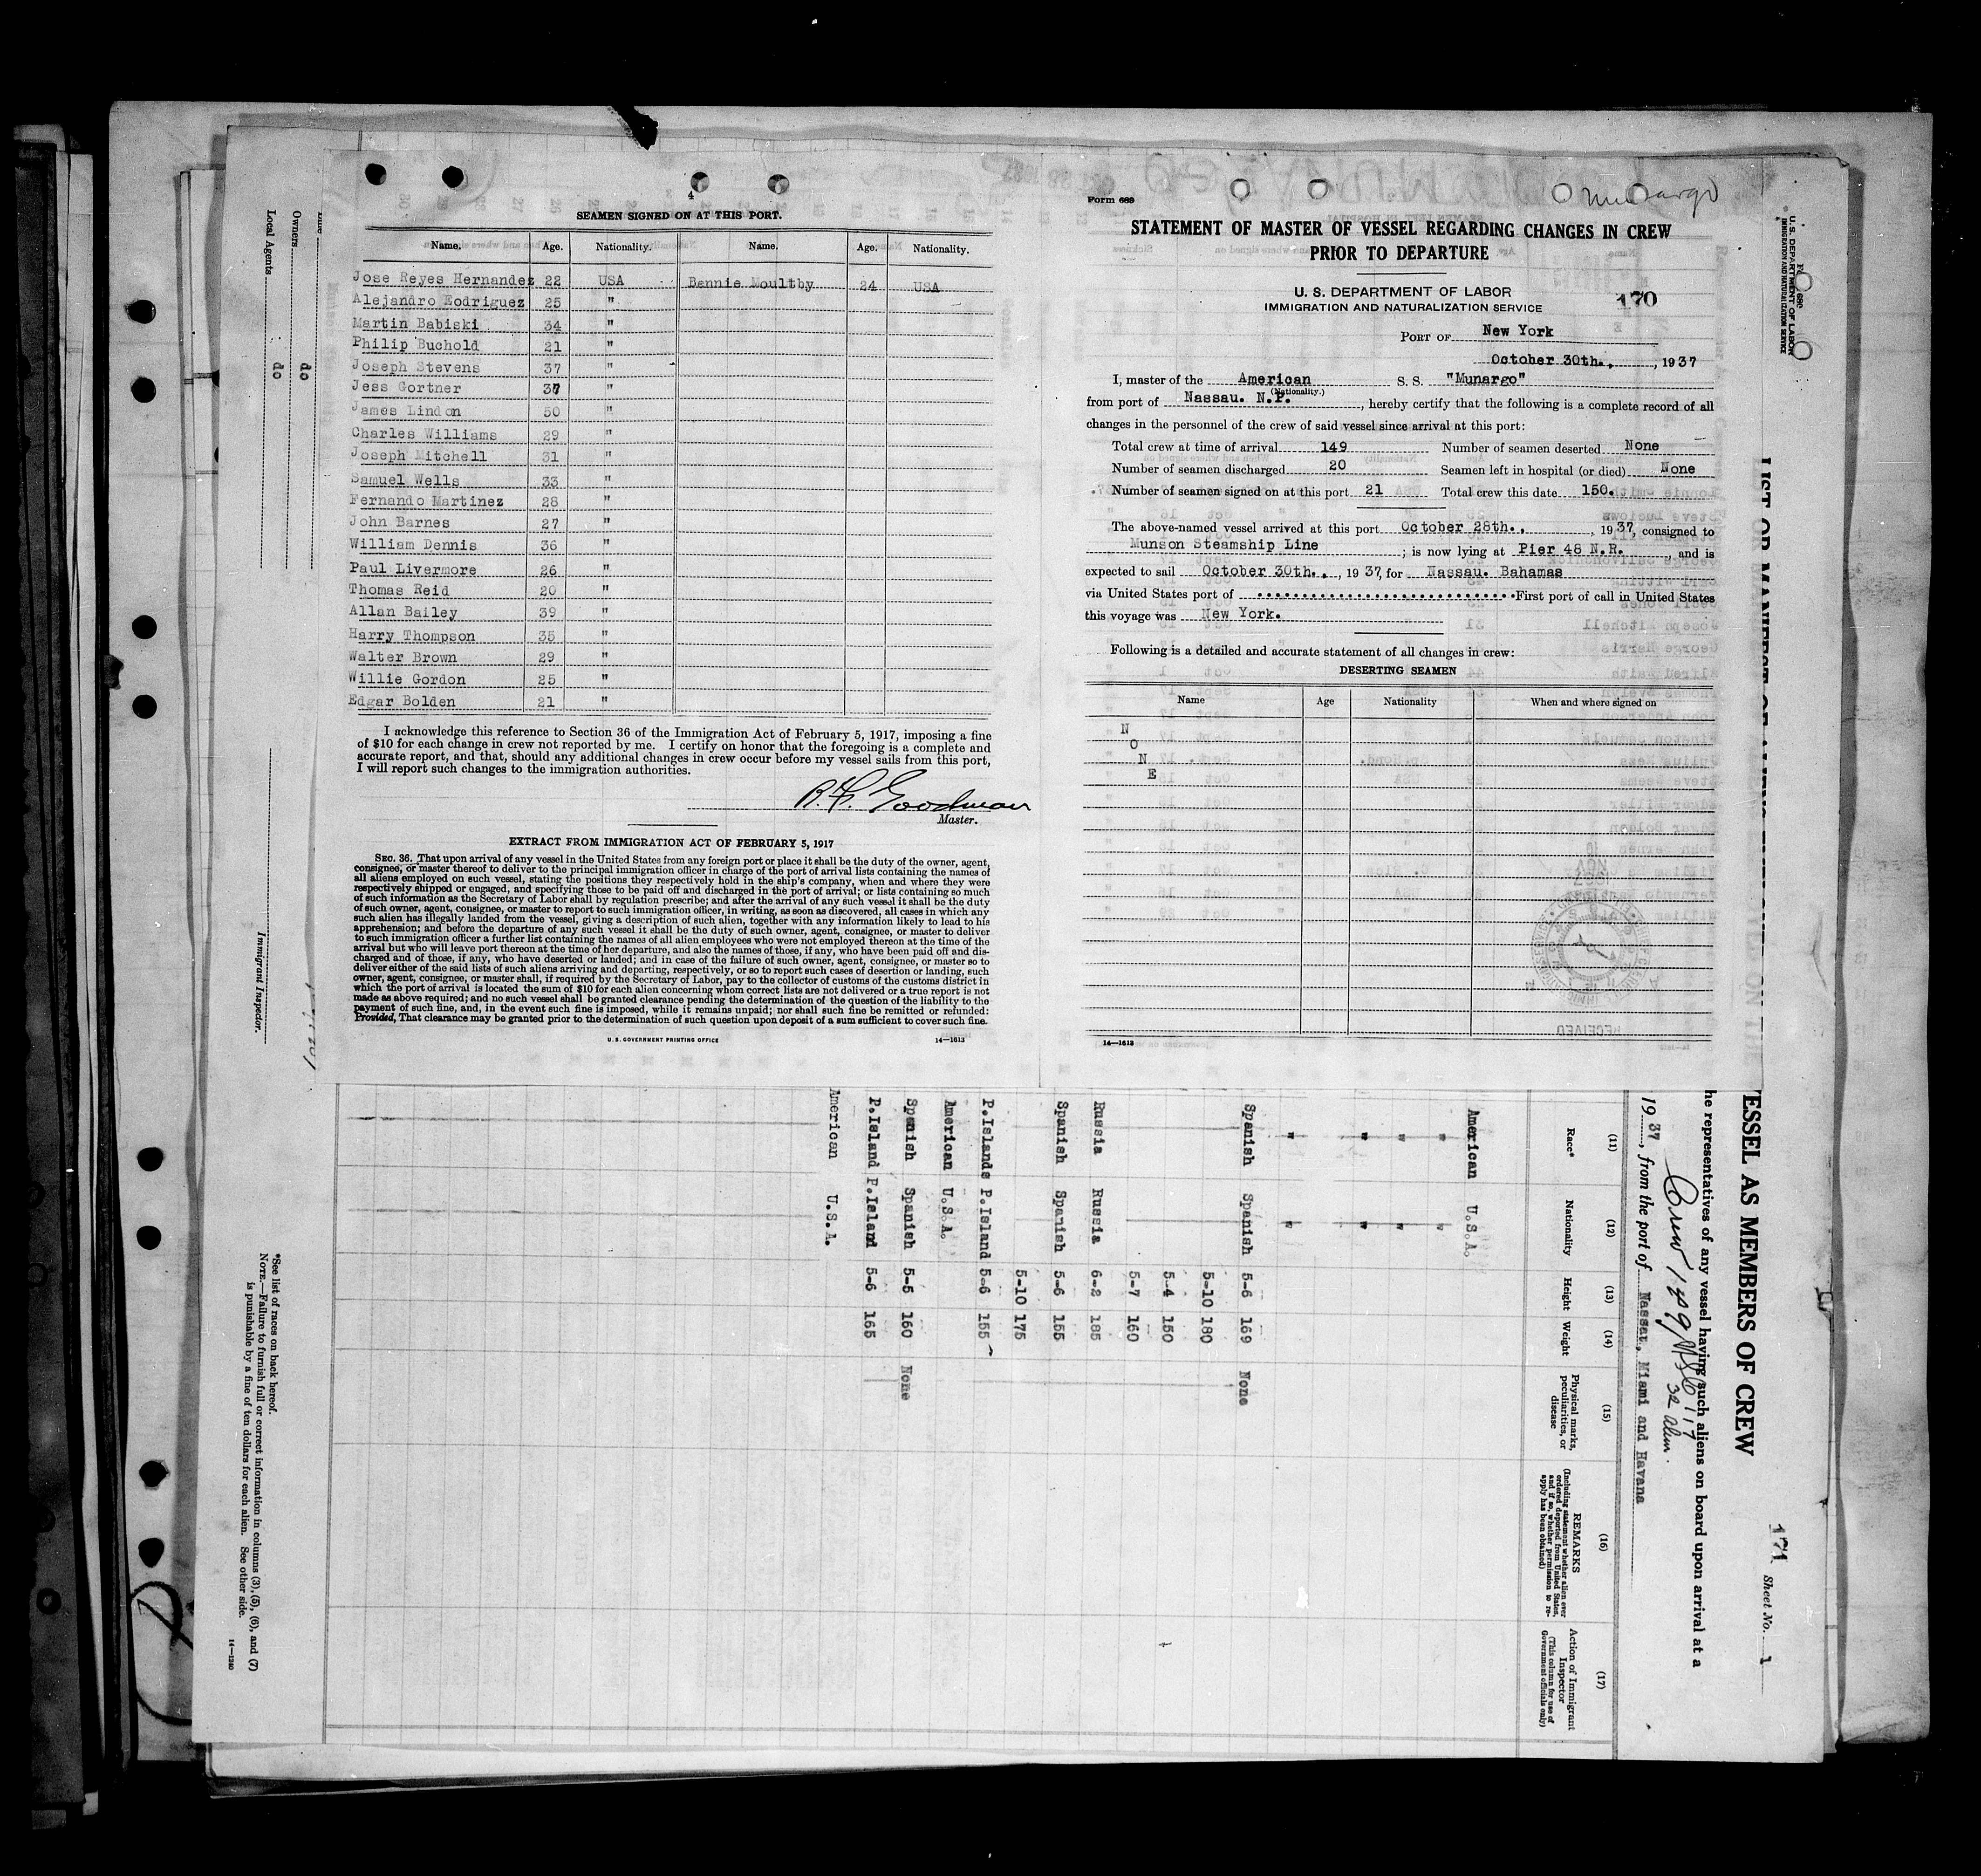 4
SEAMEN SIGNED ON AT THIS PORT.
Name. Age. Nationality. Name. Age. Nationality.
Jose Reyes Hernandez 22 USA Bennie Moultby 24 USA
Alejandro Rodriguez 25 "
Martin Babiski 34 "
Philip Buchold 21 "
Joseph Stevens 37 "
Jess Gortner 37 "
James Lindon 50 "
Charles Williams 29 "
Joseph Mitchell 31 "
Samuel Wells 33 "
Fernando Martinez 28 "
John Barnes 27 "
William Dennis 36 "
Paul Livermore 26 "
Thomas Reid 20 "
Allan Bailey 39 "
Harry Thompson 35 "
Walter Brown 29 "
Willie Gordon 25 "
Edgar Bolden 21 "
I acknowledge this reference to Section 36 of the Immigration Act of February 5, 1917, imposing a fine
of $10 for each change in crew not reported by me. I certify on honor that the foregoing is a complete and
accurate report, and that, should any additional changes in crew occur before my vessel sails from this port,
I will report such changes to the immigration authorities.
Goodman
Master.
EXTRACT FROM IMMIGRATION ACT OF FEBRUARY 5, 1917
SEC. 36. That upon arrival of any vessel in the United States from any foreign port or place it shall be the duty of the owner, agent,
consignee, or master thereof to deliver to the principal immigration officer in charge of the port of arrival lists containing the names of
all aliens employed on such vessel, stating the positions they respectively hold in the ship's company, when and where they were
respectively shipped or engaged, and specifying those to be paid off and discharged in the port of arrival; or lists containing so much
of such information as the Secretary of Labor shall by regulation prescribe; and after the arrival of any such vessel it shall be the duty
of such owner, agent, consignee, or master to report to such immigration officer, in writing, as soon as discovered, all cases in which any
such alien has illegally landed from the vessel, giving a description of such alien, together with any information likely to lead to his
apprehension; and before the departure of any such vessel it shall be the duty of such owner, agent, consignee, or master to deliver
to such immigration officer a further list containing the names of all alien employees who were not employed thereon at the time of the
arrival but who will leave port thereon at the time of her departure, and also the names of those, if any, who have been paid off and dis-
charged and of those, if any, who have deserted or landed; and in case of the failure of such owner, agent, consignee, or master so to
deliver either of the said lists of such aliens arriving and departing, respectively, or so to report such cases of desertion or landing, such
owner, agent, consignee, or master shall, if required by the Secretary of Labor, pay to the collector of customs of the customs district in
which the port of arrival is located the sum of $10 for each alien concerning whom correct lists are not delivered or a true report is not
made as above required; and no such vessel shall be granted clearance pending the determination of the question of the liability to the
payment of such fine, and, in the event such fine is imposed, while it remains unpaid; nor shall such fine be remitted or refunded:
Provided, That clearance may be granted prior to the determination of such question upon deposit of a sum sufficient to cover such fine.
U. S. GOVERNMENT PRINTING OFFICE 14—1613
Munargo
Form 689
STATEMENT OF MASTER OF VESSEL REGARDING CHANGES IN CREW
PRIOR TO DEPARTURE
U. S. DEPARTMENT OF LABOR
IMMIGRATION AND NATURALIZATION SERVICE
170
PORT OF New York
October 30th., , 1937
I, master of the American S. S. "Munargo"
(Nationality.)
from port of Nassau. N.P. , hereby certify that the following is a complete record of all
changes in the personnel of the crew of said vessel since arrival at this port:
Total crew at time of arrival 149 Number of seamen deserted None
Number of seamen discharged 20 Seamen left in hospital (or died) None
Number of seamen signed on at this port 21 Total crew this date 150.
The above-named vessel arrived at this port October 28th., , 1937, consigned to
Munson Steamship Line ; is now lying at Pier 48 N.R. , and is
expected to sail October 30th., , 1937, for Nassau. Bahamas
via United States port of First port of call in United States
this voyage was New York.
Following is a detailed and accurate statement of all changes in crew:
DESERTING SEAMEN
Name Age Nationality When and where signed on
N
O
N
E
14—1613
U. S. DEPARTMENT OF LABOR
IMMIGRATION AND NATURALIZATION SERVICE
ESSEL AS MEMBERS OF CREW
171 Sheet No. 1
he representatives of any vessel having such aliens on board upon arrival at a
Crew 149 USC 117
32 alien.
1937, from the port of Nassau, Miami and Havana
(11) (12) (13) (14) (15) (16) (17)
Race* Nationality Height Weight Physical marks, peculiarities, or disease REMARKS (Including statement whether alien ever ordered deported from United States, and if so, whether permission to re-apply has been obtained) Action of Immigrant Inspector (This column for use of Government officials only)
American U.S.A.
" "
" "
" "
" "
Spanish Spanish 5-6 169 None
5-10 180
5-4 150
5-7 160
Russia Russia 6-2 185
Spanish Spanish 5-6 155
5-10 175
P.Islands P.Island 5-6 155
American U.S.A.
Spanish Spanish 5-5 160 None
P.Island P.Island 5-6 165
American U.S.A.
*See list of races on back hereof.
NOTE.—Failure to furnish full or correct information in columns (3), (5), (6), and (7)
is punishable by a fine of ten dollars for each alien. See other side.
14—1240
Owners do
Local Agents do
Immigrant Inspector.